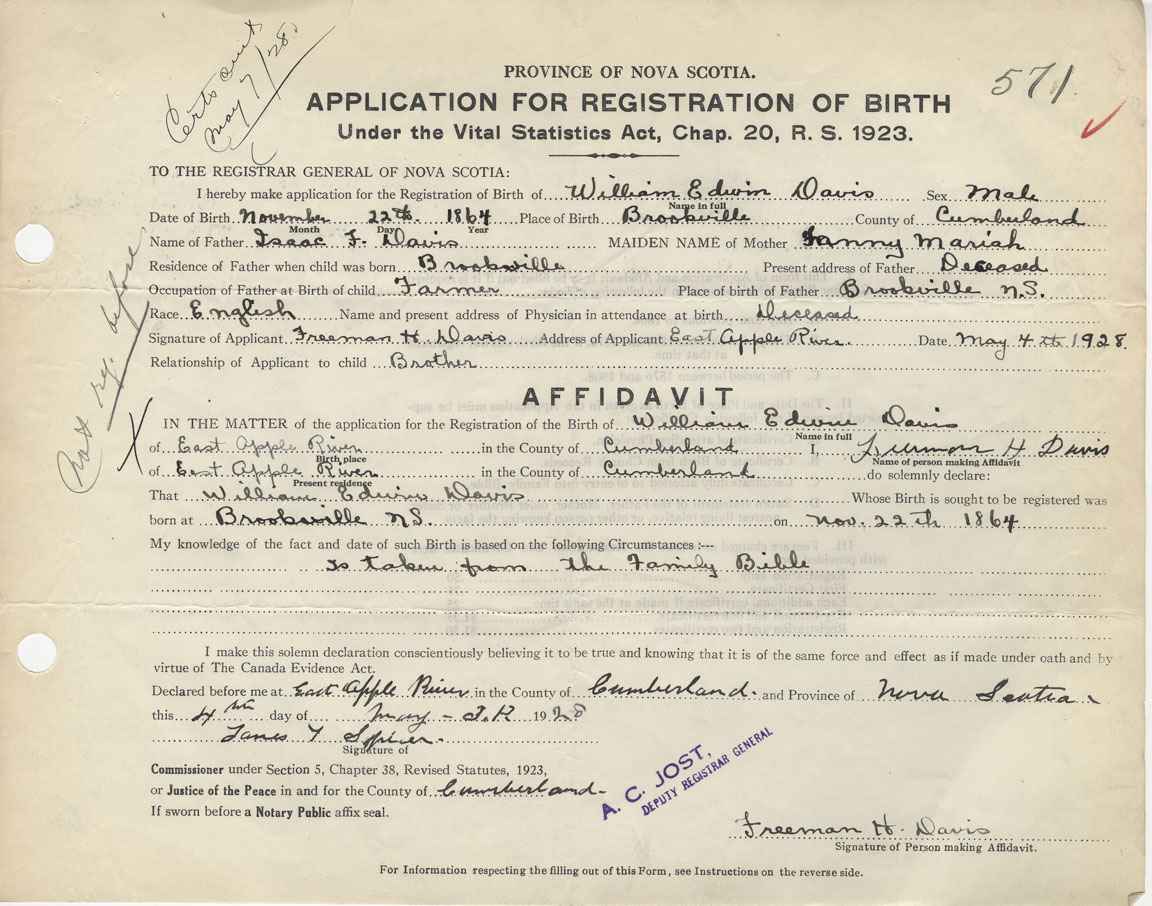 Certs out
May 7/28
571
PROVINCE OF NOVA SCOTIA.
APPLICATION FOR REGISTRATION OF BIRTH
Under the Vital Statistics Act, Chap. 20, R. S. 1923.
TO THE REGISTRAR GENERAL OF NOVA SCOTIA:
I hereby make application for the Registration of Birth of William Edwin Davis Sex Male
Name in full
Date of Birth November 22th. 1864 Place of Birth Brookville County of Cumberland
Month Day Year
Name of Father Isaac F. Davis MAIDEN NAME of Mother Fanny Mariah
Residence of Father when child was born Brookville Present address of Father Deceased
Occupation of Father at Birth of child Farmer Place of birth of Father Brookville N.S.
Race English Name and present address of Physician in attendance at birth Deceased
Signature of Applicant Freeman H. Davis Address of Applicant East Apple River. Date May 4th 1928.
Relationship of Applicant to child Brother
Not reg. before
X
AFFIDAVIT
IN THE MATTER of the application for the Registration of the Birth of William Edwin Davis
Name in full
of East Apple River in the County of Cumberland I, Freeman H Davis
Birth place Name of person making Affidavit
of East Apple River in the County of Cumberland do solemnly declare:
Present residence
That William Edwin Davis Whose Birth is sought to be registered was
born at Brooksville NS. on Nov. 22th 1864
My knowledge of the fact and date of such Birth is based on the following Circumstances :---
Is taken from the Family Bible
I make this solemn declaration conscientiously believing it to be true and knowing that it is of the same force and effect as if made under oath and by
virtue of The Canada Evidence Act.
Declared before me at East Apple River in the County of Cumberland. and Province of Nova Scotia.
this 4th day of May 1928
James Spicer.
Signature of
Commissioner under Section 5, Chapter 38, Revised Statutes, 1923,
or Justice of the Peace in and for the County of Cumberland.
If sworn before a Notary Public affix seal.
A. C. JOST,
DEPUTY REGISTRAR GENERAL
Freeman H. Davis
Signature of Person making Affidavit.
For Information respecting the filling out of this Form, see Instructions on the reverse side.